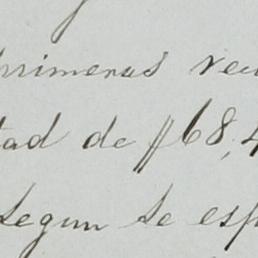 primeras rec
tad de $68,4
segun se esp